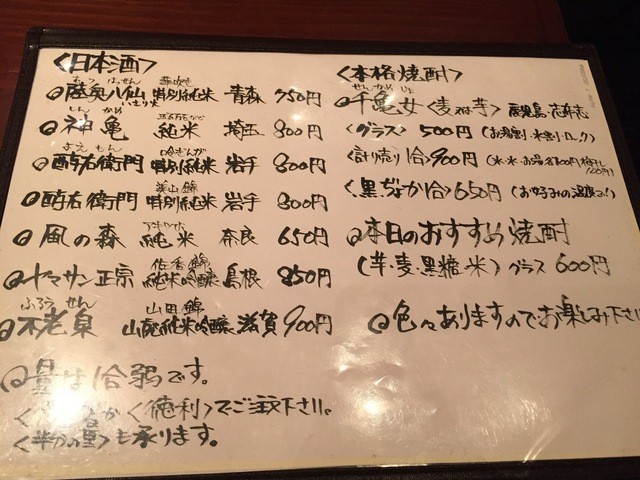 〈日本酒〉
むつ はっせん 華吹雪
陸奥八仙 特別純米 青森 750円
しんかめ
神亀 純米 埼玉 800円
よえもん 吟ぎんが
酉与右衛門 特別純米 岩手 800円
美山錦
酉与右衛門 特別純米 岩手 800円
風の森 純米 奈良 650円
佐香錦
ヤマサン正宗 純米吟醸 島根 850円
ふろうせん 山田錦
不老泉 山廃純米吟醸 滋賀 900円
量は1合弱です。
〈徳利〉でご注文下さい。
〈半分の量〉も承ります。
〈本格焼酎〉
せんかめじょ
千亀女〈麦or芋〉鹿児島・志布志
〈グラス〉500円(お湯割・水割・ロック)
〈計り売り1合〉900円
〈黒ぢょか1合〉650円(お好みの温度で!)
本日のおすすめ焼酎
(芋・麦・黒糖・米)グラス 600円
色々ありますのでお楽しみ下さい